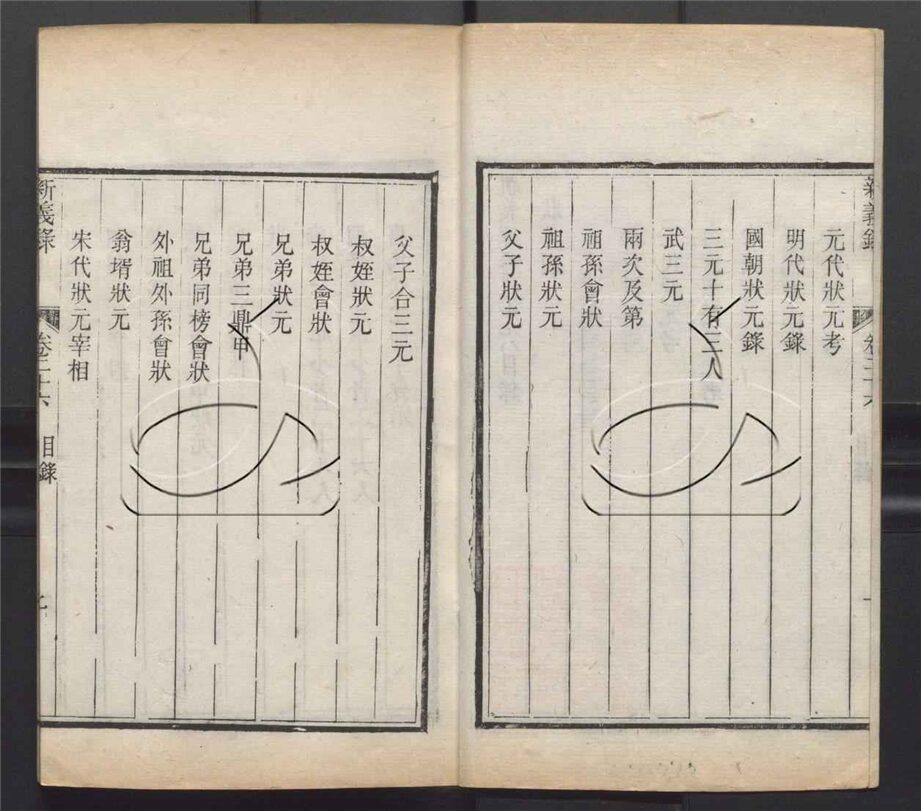 新義錄
卷三十六
元代狀元考
明代狀元錄
國朝狀元錄
三元十有三人
武三元
兩次及第
祖孫會狀
祖孫狀元
父子狀元
父子合三元
叔姪狀元
叔姪會狀
兄弟狀元
兄弟三鼎甲
兄弟同榜會狀
外祖外孫會狀
翁壻狀元
宋代狀元宰相
新義錄
卷三十六
目錄